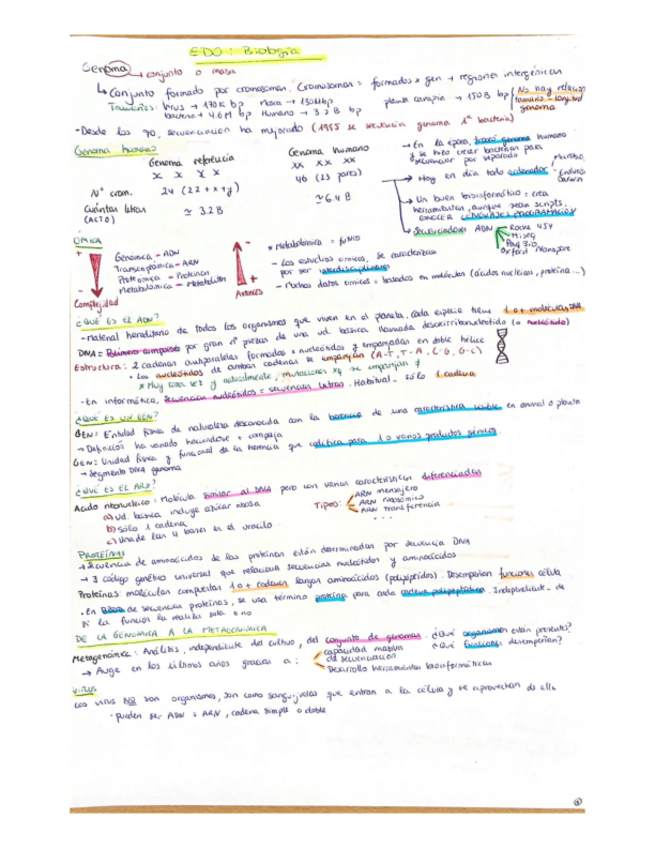 EDO: Biología
Genoma → conjunto o masa
↳ Conjunto formado por cromosomas. Cromosomas = formados x gen + regiones intergénicas
Tamaños: Virus → 170K bp Mosca → 130Mbp planta canopia → 150B bp { No hay relación
bacteria → 4.6M bp Humano → 3'2 B bp tamaño - longitud
genoma
- Desde los 90, secuenciación ha mejorado (1995 se secuencia genoma 1ª bacteria)
Genoma humano
Genoma referencia
Genoma humano
x x x x
xx xx xx
Nº crom. 24 (22 + x + y)
46 (23 pares)
Cuántas letras ≃ 3.2B
≃ 6.4 B
(ACTG)
→ En la época, genoma humano
y se hizo crecer bacterias para
secuenciar por separado
→ Hoy en día todo ordenador
→ Un buen bioinformático = crea
herramientas, aunque sean scripts.
CONOCER LENGUAJES PROGRAMACIÓN
→ Secuenciadores ADN Roche 454
Miseq
Oxford Nanopore
ÓMICA
+ Genómica - ADN
Transcriptómica - ARN
Proteómica - Proteínas
- Metabolómica - Metabolitos
Complejidad
-
+
Avances
* Metabolómica = fenotipo
- Los estudios ómicos, se caracterizan
por ser interdisciplinares
- Muchos datos ómicos = basados en moléculas (ácidos nucleicos, proteína...)
¿QUÉ ES EL ADN?
- Material hereditario de todos los organismos que viven en el planeta. Cada especie tiene 1 o + moléculas DNA
DNA = Polímero compuesto por gran nº piezas de una ud. básica llamada desoxirribonucleótido (o nucleótido)
Estructura: 2 cadenas antiparalelas formadas x nucleótidos y empaquetadas en doble hélice
• Los nucleótidos de ambas cadenas se emparejan (A-T, T-A, C-G, G-C)
* Muy rara vez y naturalmente, mutaciones xq se emparejan ≠
- En informática, secuencias nucleótidos = secuencias letras. Habitual - sólo 1 cadena
¿QUÉ ES UN GEN?
GEN: Entidad física de naturaleza desconocida con la herencia de una característica visible en animal o planta
→ Definición ha variado haciéndose + compleja
GEN: Unidad física y funcional de la herencia que codifica para 1 o varios productos génicos.
→ Segmento DNA genoma
¿QUÉ ES EL ARN?
Acido ribonucleico: Molécula similar al DNA pero con varias características diferenciadas
a) Ud. básica incluye azúcar ribosa
b) sólo 1 cadena
c) Una de las 4 bases es el uracilo
Tipos: ARN mensajero
ARN ribosómico
ARN transferencia
...
PROTEÍNAS
→ Secuencia de aminoácidos de las proteínas están determinadas por secuencia DNA
→ ∃ código genético universal que relaciona secuencias nucleótidos y aminoácidos
Proteínas: moléculas compuestas 1 o + cadenas largas aminoácidos (polipéptidos). Desempeñan funciones célula
• En BBDD de secuencias proteínas, se usa término proteína para cada cadena polipeptídica. Independient. de
si la función la realiza sola o no
DE LA GENÓMICA A LA METAGENÓMICA
Metagenómica: Análisis, independiente del cultivo, del conjunto de genomas. ¿Qué organismos están presentes?
¿Qué funciones desempeñan?
→ Auge en los últimos años gracias a: capacidad masiva
de secuenciación
Desarrollo herramientas bioinformáticas
VIRUS
Los virus NO son organismos, son como sanguijuelas que entran a la célula y se aprovechan de ella
• pueden ser ADN o ARN, cadena simple o doble